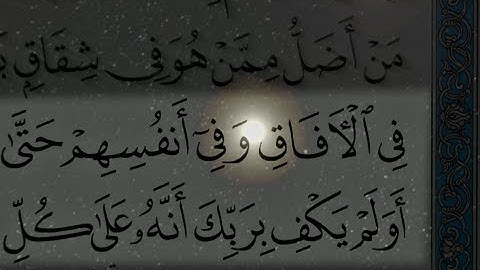 مَنۡ أَضَلُّ مِمَّنۡ هُوَ فِي شِقَاقِۭ
فِي ٱلۡأٓفَاقِ وَفِيٓ أَنفُسِهِمۡ حَتَّىٰ
أَوَلَمۡ يَكۡفِ بِرَبِّكَ أَنَّهُۥ عَلَىٰ كُلِّ